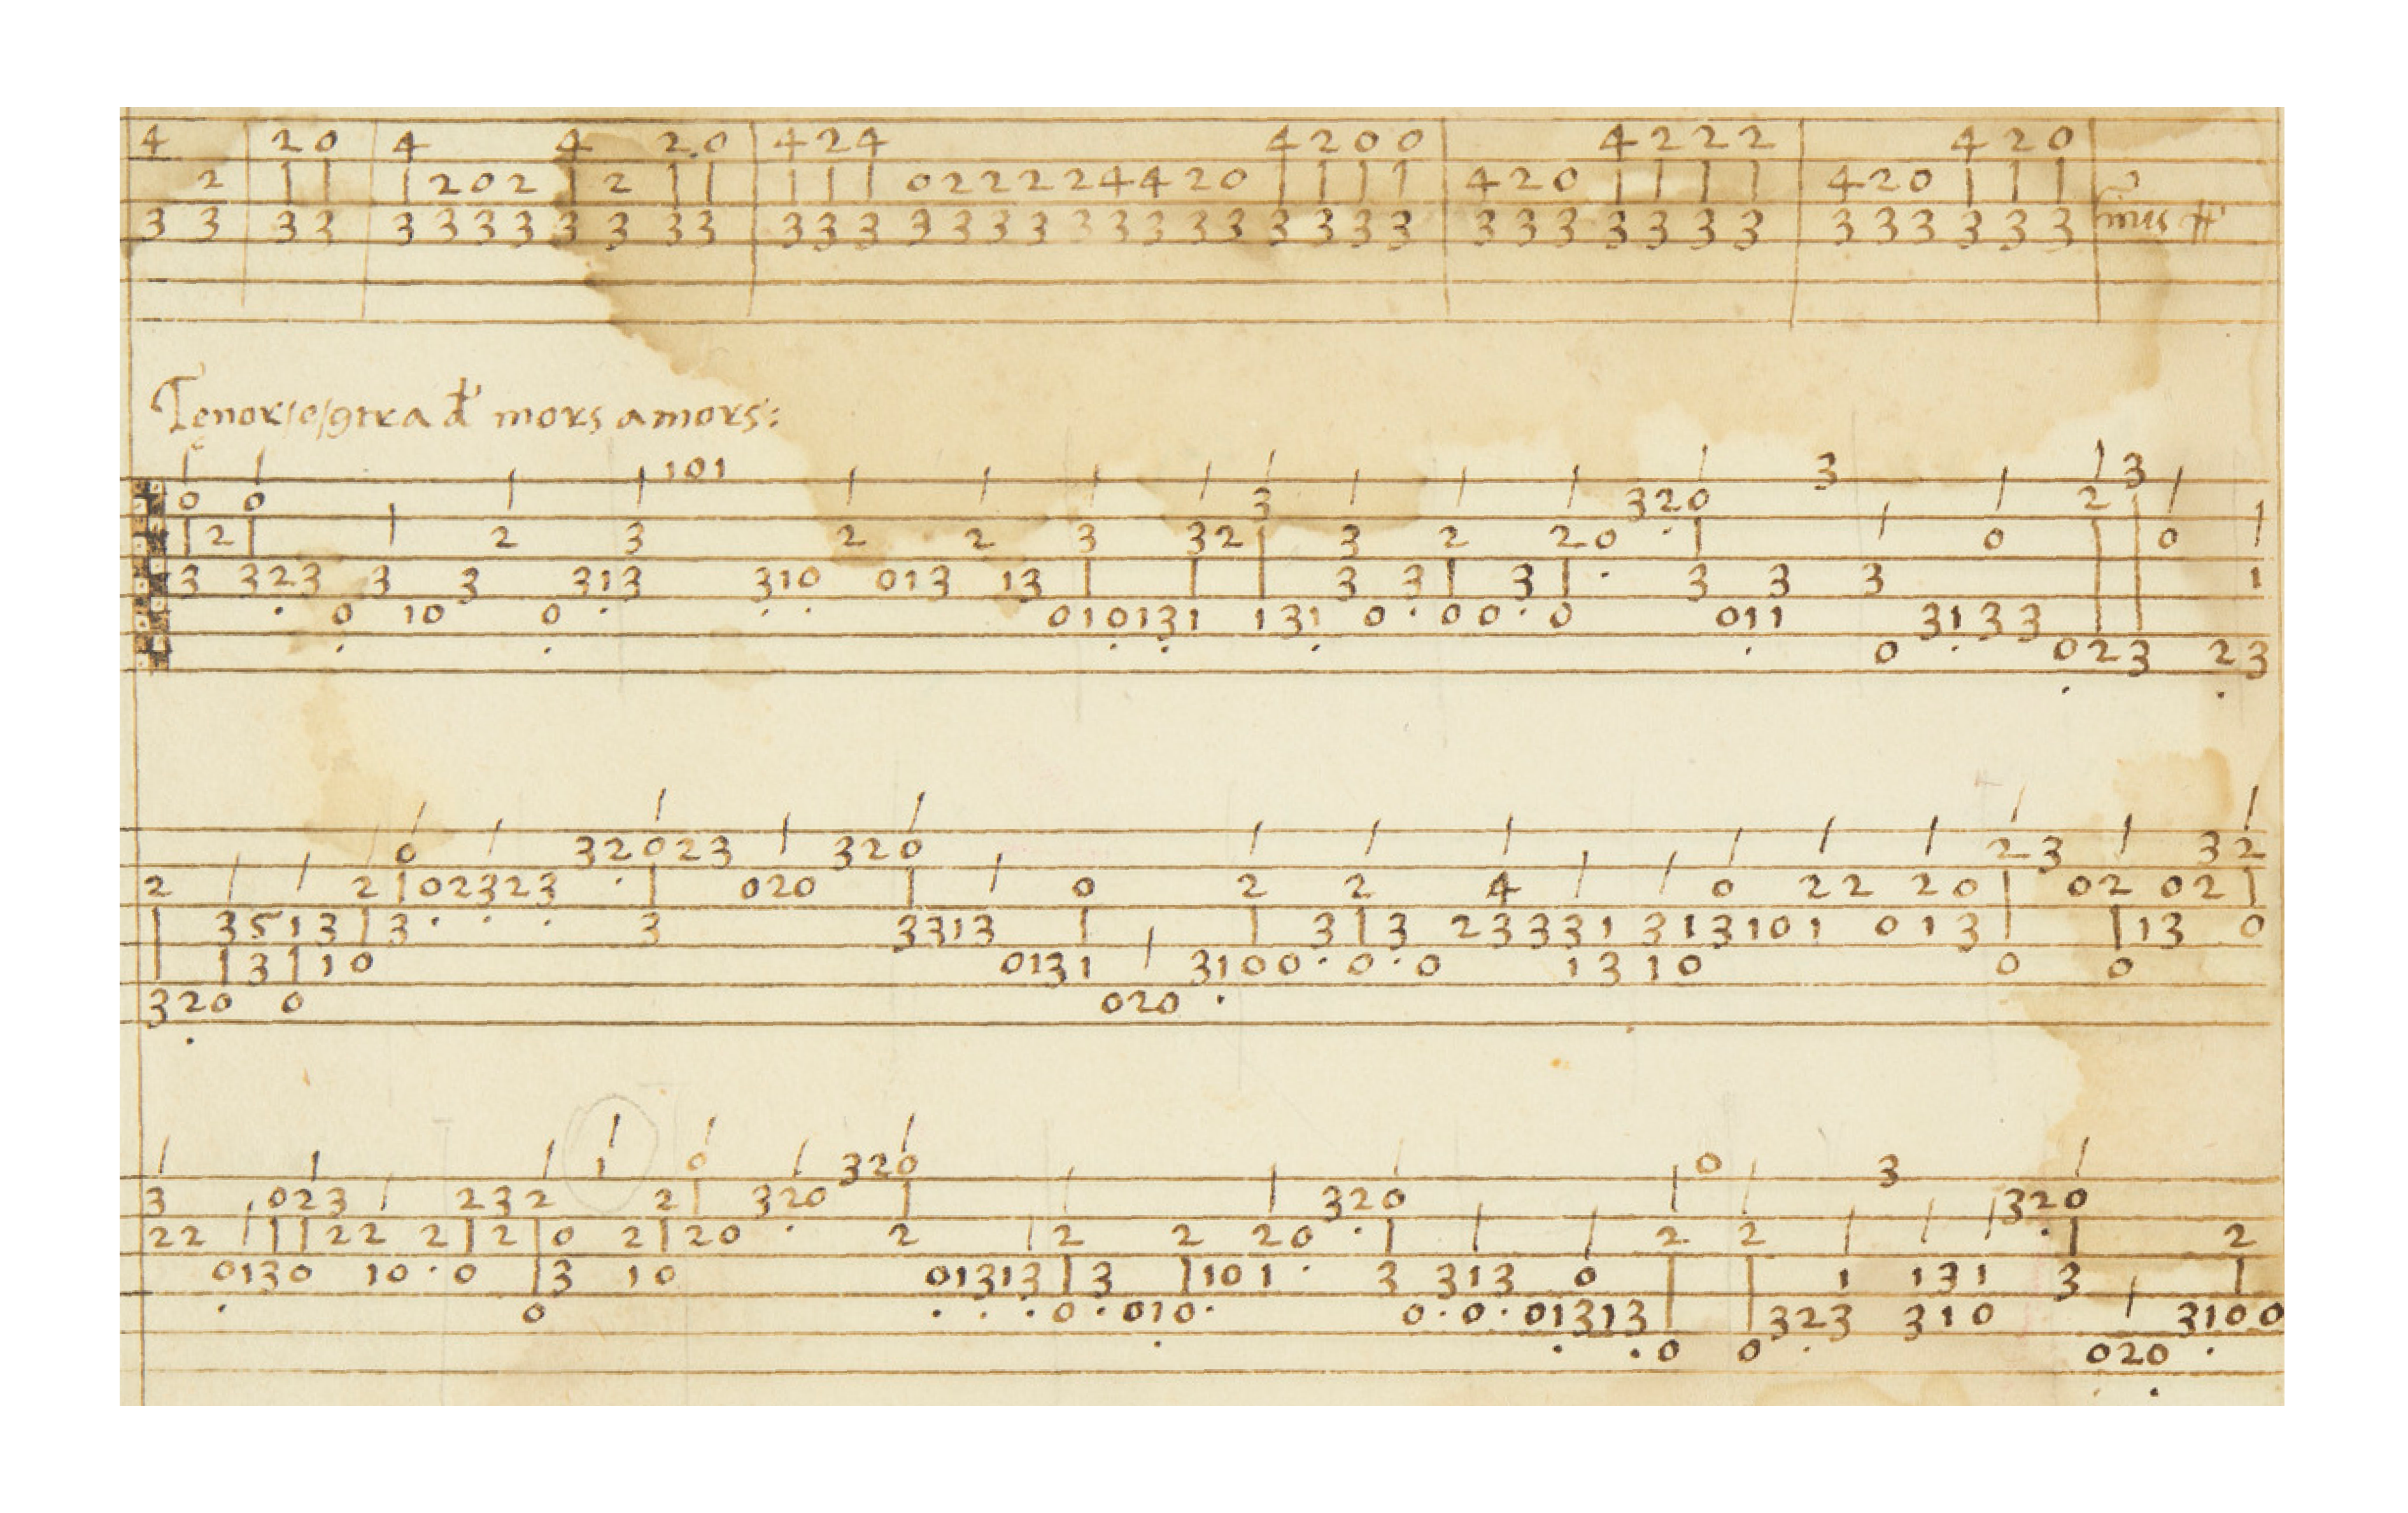 4 20 4 4 2.0 424 4200 4222 420
2 202 2 022224420 420 420
33 33 33333333 3333333333333333 3333333 333333 finus
Tenor/e/gtra d mors amors:
101 3 3
0 0 3 320 2
2 2 3 2 2 3 32 3 2 20 0 0
3 323 3 3 313 310 013 13 3 3 3 3 3 3 1
0 10 0 010131 131 0 00 0 011 3133
0 023 23
0 32023 320 23 32
2 2 02323 020 0 2 2 4 0 22 20 02 02
3513 3 3 3313 3 3 23331 313101 013 13 0
3 10 0131 3100 0 0 13 10 0 0
320 0 020
1 0 320 0 3
3 023 232 2 320 320 320
22 22 2 2 0 2 20 2 2 2 20 2 2 2
0130 10 0 3 10 01313 3 101 3 313 0 1 131 3
0 0 010 0 0 01313 323 310 3100
0 0 020